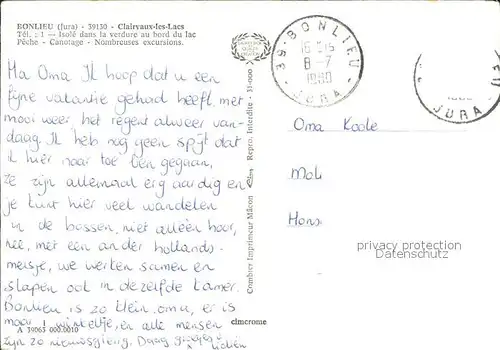 BONLIEU (Jura) - 39130 - Clairvaux-les-Lacs
Tél. : 1 — Isolé dans la verdure au bord du lac
Pêche - Canotage - Nombreuses excursions.
Ha Oma. Ik hoop dat u een
fijne vakantie gehad heeft, met
mooi weer het regent alweer van-
daag. Ik heb nog geen spijt dat
ik hier naar toe ben gegaan,
ze zijn allemaal erg aardig en
je kunt hier veel wandelen
in de bossen, niet alleen hoor,
nee, met een ander hollands
meisje, we werken samen en
slapen ook in dezelfde kamer.
Bonlieu is zo klein oma, er is
maar 1 winkeltje, en alle mensen
zijn zo nieuwsgierig. Daag
A 39065 000.0010
cimcrome
Combier Imprimeur Mâcon
Repro. Interdite - 35-000
39 - BONLIEU
8-7
1980
JURA
JURA
Oma Koole
Mol
Hons
privacy protection
Datenschutz